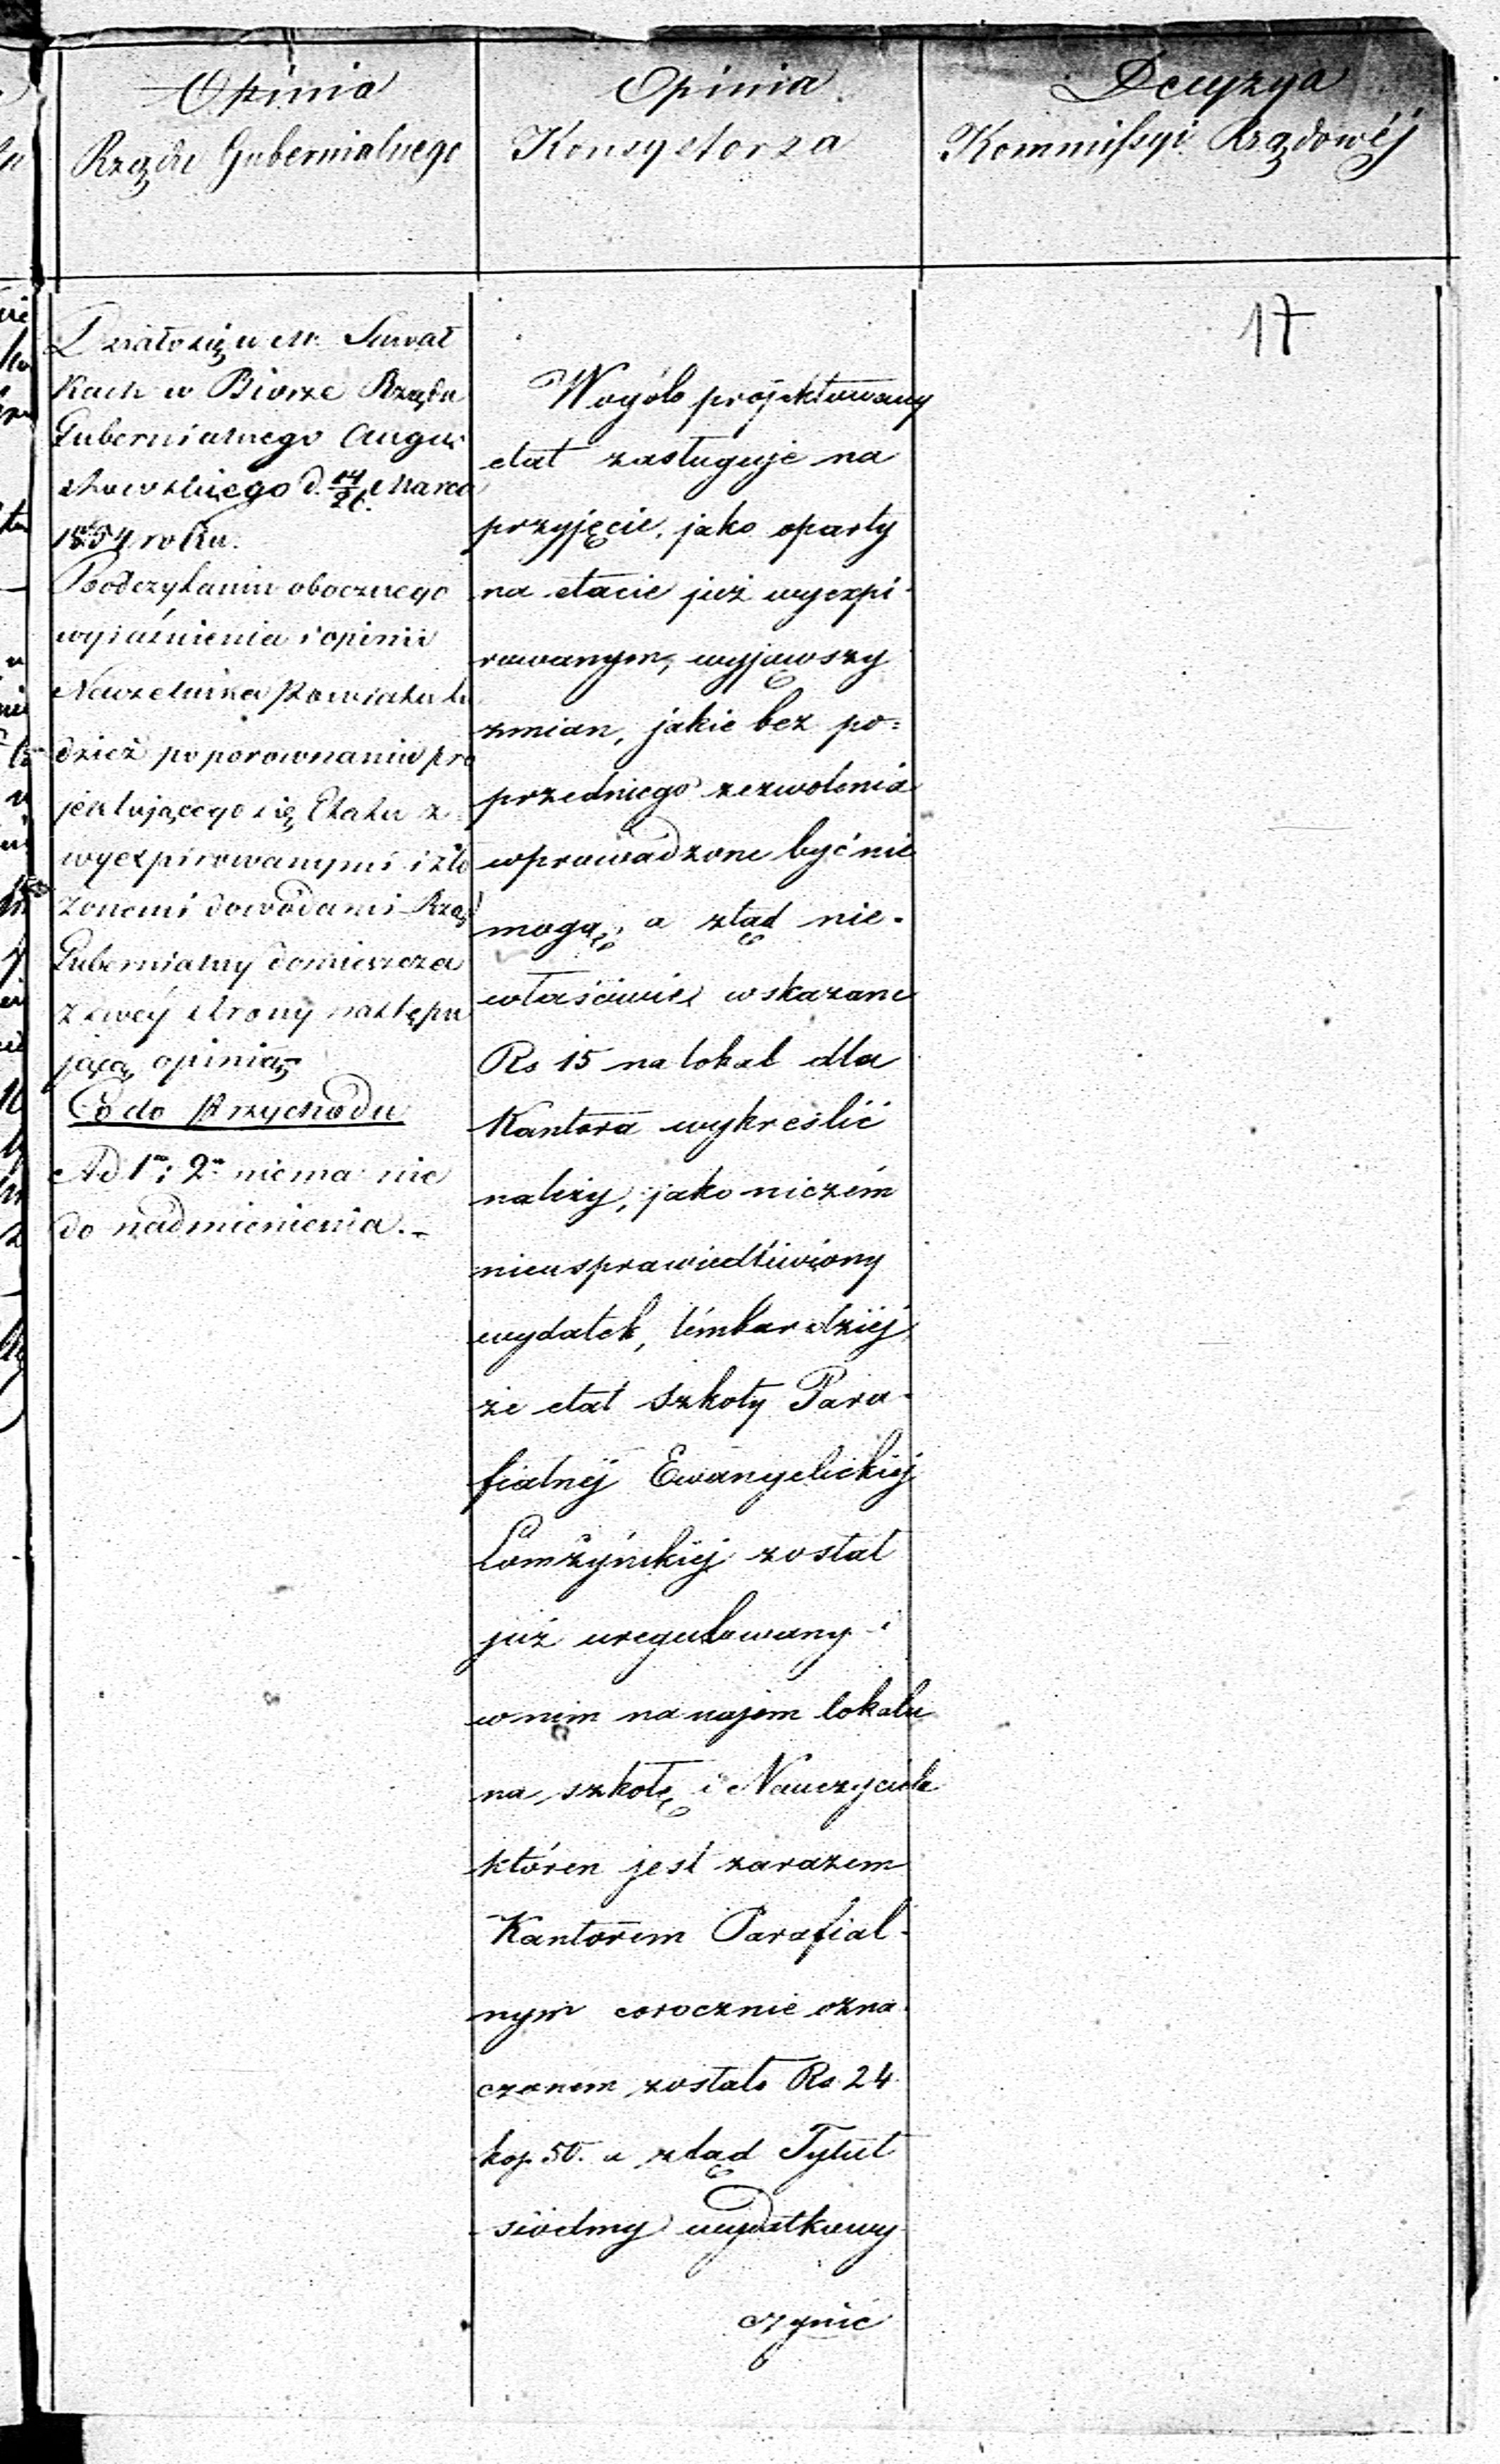 Opinia
Rządu Gubernialnego
Działo się w M. Suwał
kach w Biórze Rządu
Gubernialnego Augu
stowskiego d. 14/26 Marca
1854 roku.
Po odczytaniu obocznego
wyjaśnienia i opinii
Naczelnika Powiatu tu
dzież po porównaniu pro
jektującego się Etatu z
wyexpirowanymi i zło
żonemi dowodami Rząd
Gubernialny domieszcza
z swéj strony następu
jącą opinią
Co do Przychodu
Ad 1º i 2º niema nic
do nadmienienia.-
Opinia
Konsystorza
Wogóle projektowany
etat zasługuje na
przyjęcie, jako oparty
na etacie już wyexpi-
rowanym, wyjąwszy
zmian, jakie bez po=
przedniego zezwolenia
wprowadzone być nie
mogą, a ztąd nie-
właściwie wskazane
Rs 15 na lokal dla
Kantora wykreślić
należy, jako niczém
nieusprawiedliwiony
wydatek, témbardziéj
że etat szkoły Para-
fialnéj Ewangelickiéj
Łomżyńskiéj został
już uregulowany i
w nim na najem lokalu
na szkołę i Nauczyciela
któren jest zarazem
Kantorem Parafial-
nym corocznie ozna-
czonem zostało Rs. 24
kop. 50. a ztąd Tytuł
siódmy wydatkowy
czynić
Decyzya
Kommissyi Rządowéj
17